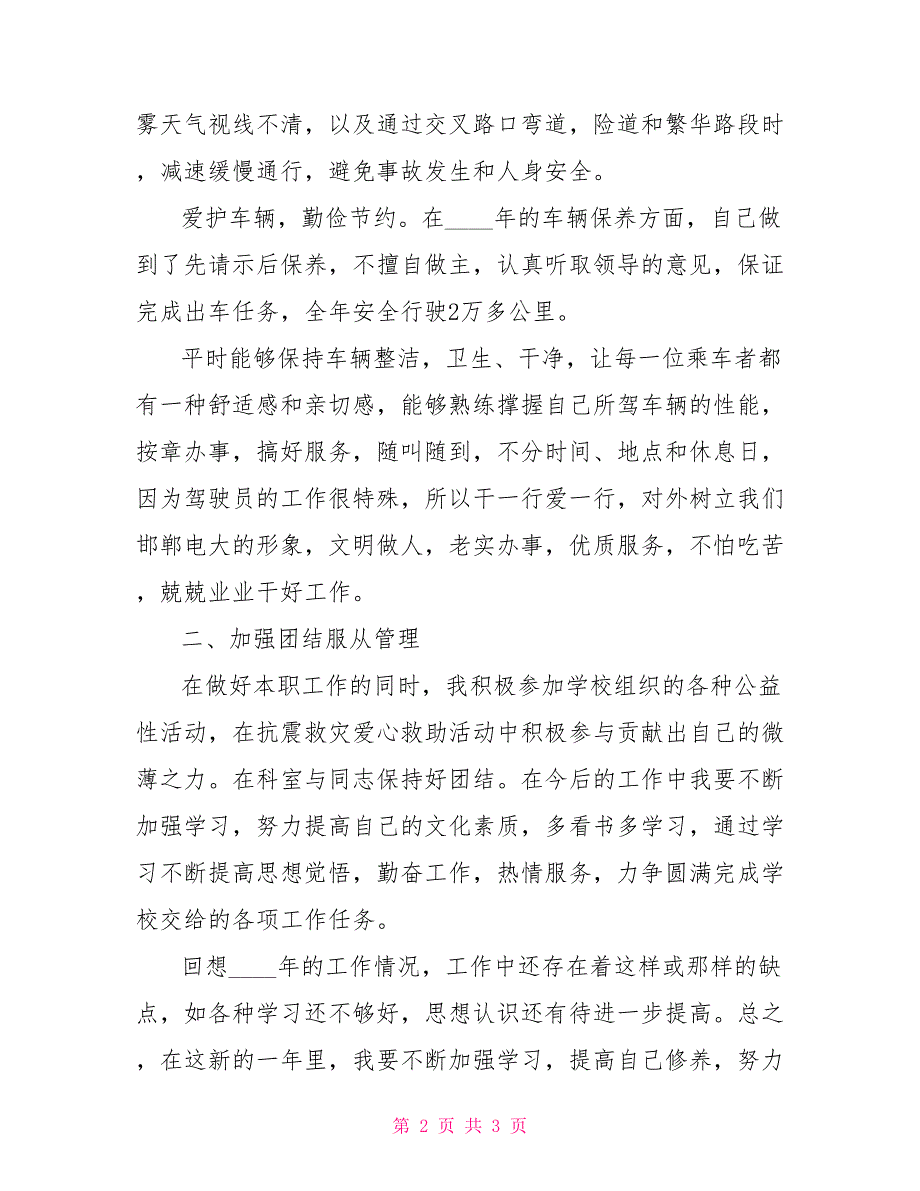 雾天气视线不清，以及通过交叉路口弯道，险道和繁华路段时
，减速缓慢通行，避免事故发生和人身安全。
爱护车辆，勤俭节约。在____年的车辆保养方面，自己做
到了先请示后保养，不擅自做主，认真听取领导的意见，保证
完成出车任务，全年安全行驶2万多公里。
平时能够保持车辆整洁，卫生、干净，让每一位乘车者都
有一种舒适感和亲切感，能够熟练撑握自己所驾车辆的性能，
按章办事，搞好服务，随叫随到，不分时间、地点和休息日，
因为驾驶员的工作很特殊，所以干一行爱一行，对外树立我们
邯郸电大的形象，文明做人，老实办事，优质服务，不怕吃苦
，兢兢业业干好工作。
二、加强团结服从管理
在做好本职工作的同时，我积极参加学校组织的各种公益
性活动，在抗震救灾爱心救助活动中积极参与贡献出自己的微
薄之力。在科室与同志保持好团结。在今后的工作中我要不断
加强学习，努力提高自己的文化素质，多看书多学习，通过学
习不断提高思想觉悟，勤奋工作，热情服务，力争圆满完成学
校交给的各项工作任务。
回想____年的工作情况，工作中还存在着这样或那样的缺
点，如各种学习还不够好，思想认识还有待进一步提高。总之
，在这新的一年里，我要不断加强学习，提高自己修养，努力
第 2 页 共 3 页